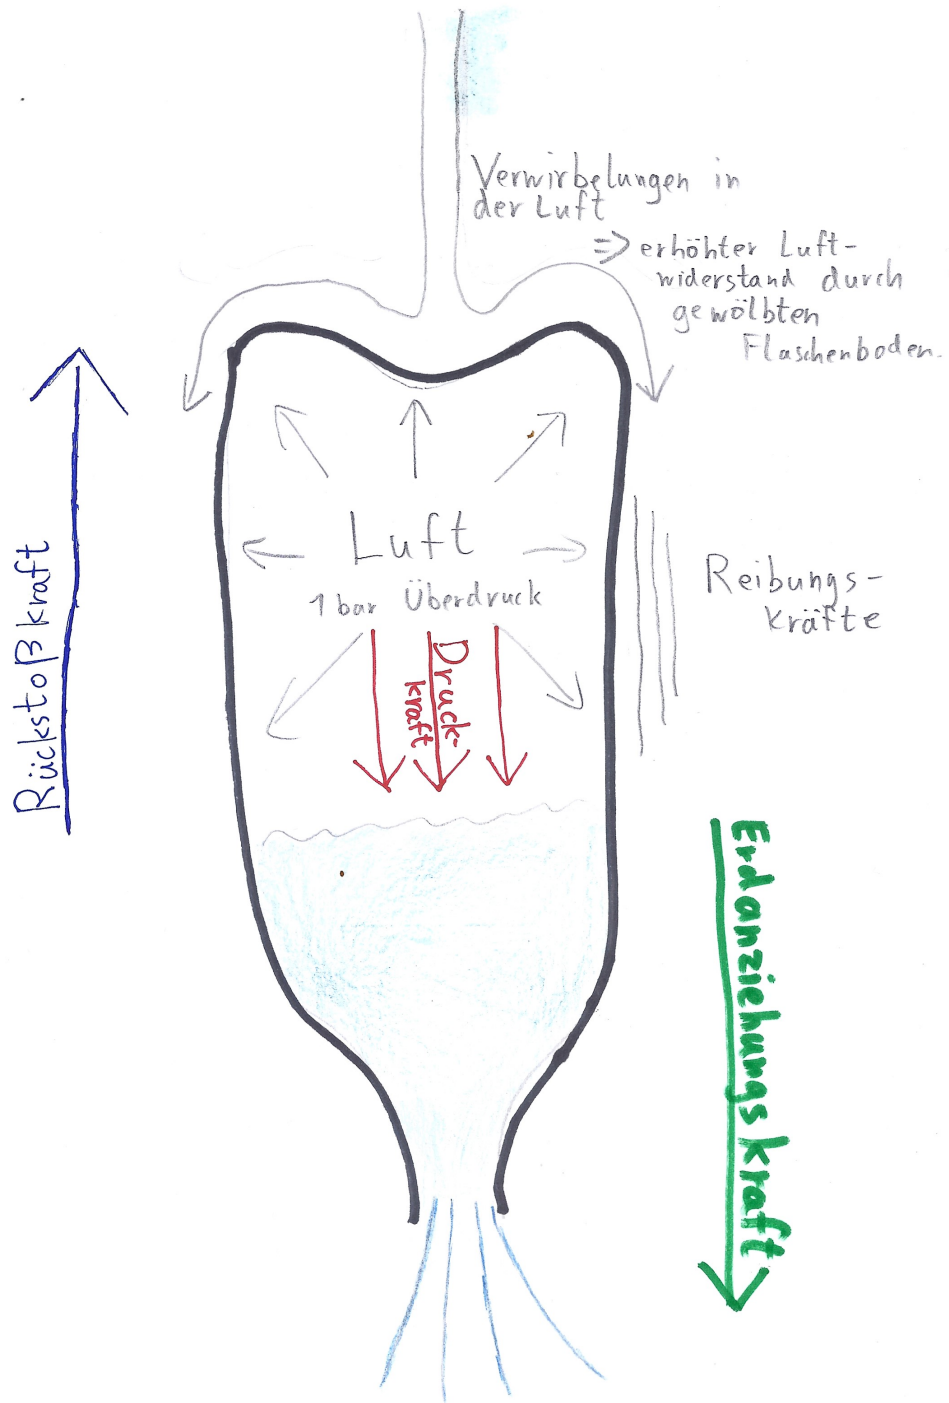 Verwirbelungen in
der Luft
=> erhöhter Luft-
widerstand durch
gewölbten
Flaschenboden.
Rückstoßkraft
Luft
1 bar Überdruck
Druck-
kraft
Reibungs-
kräfte
Erdanziehungskraft